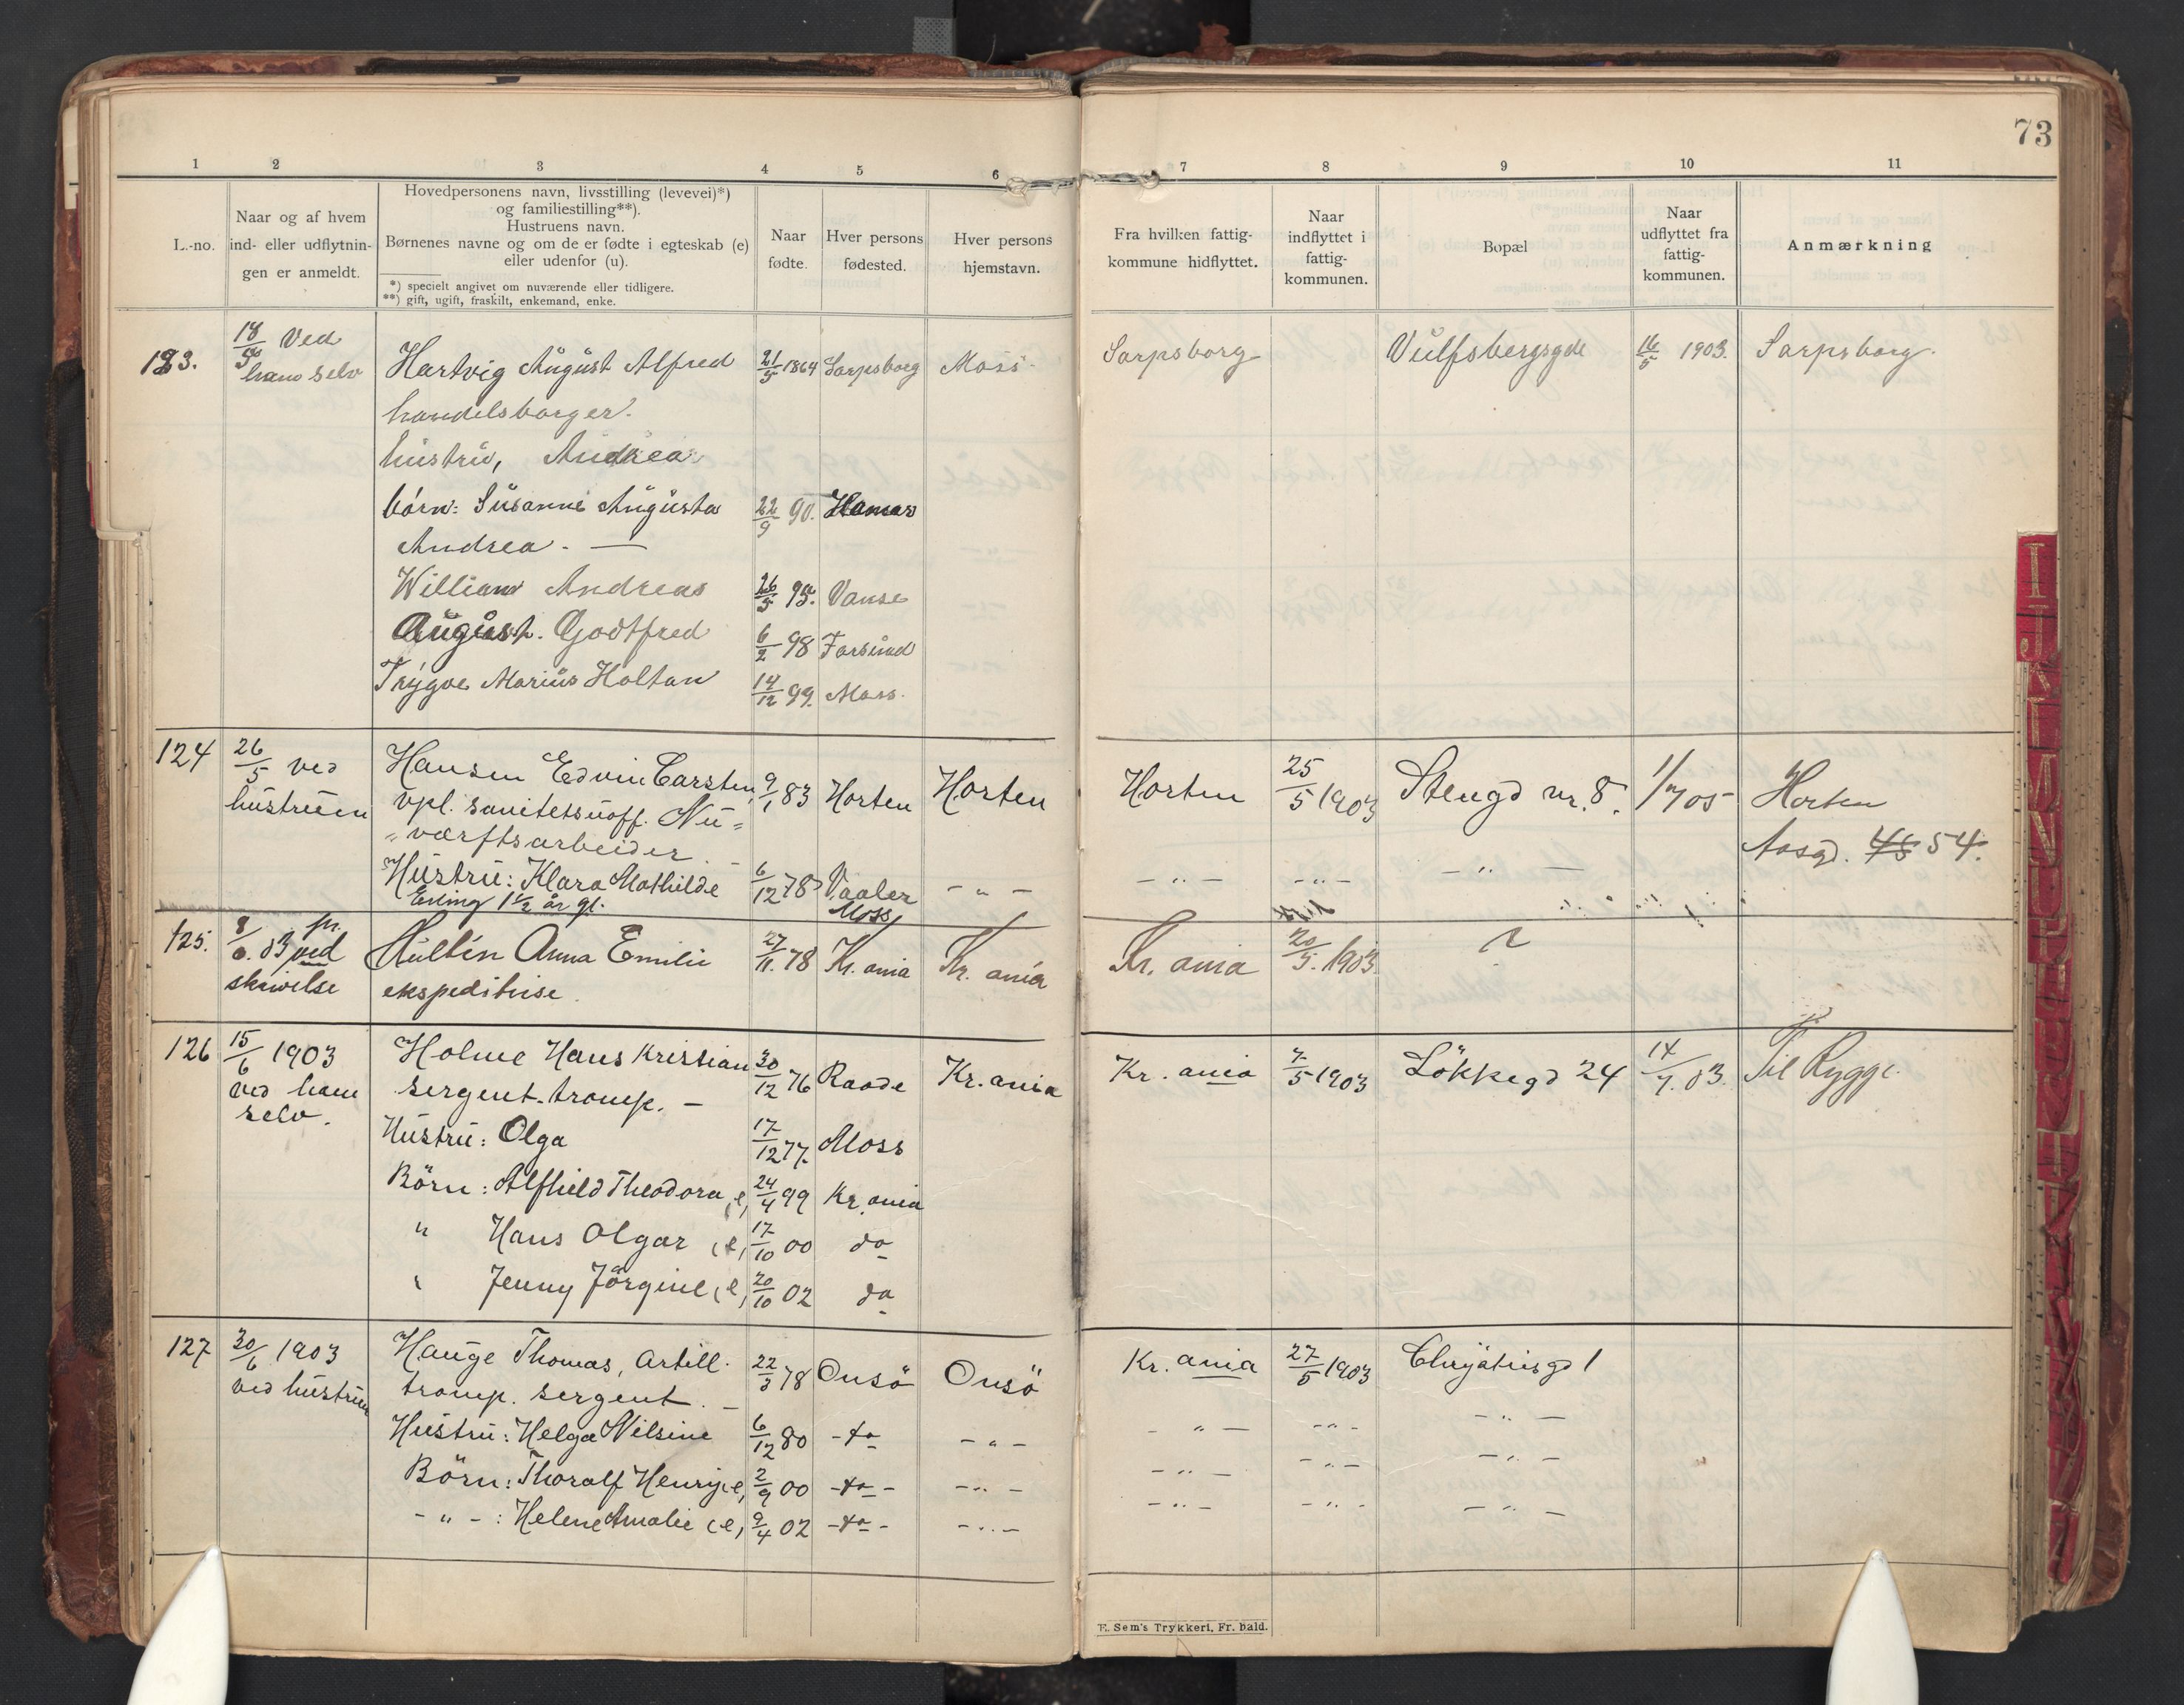 73
1 2 3 4 5 6 7 8 9 10 11
L.-no.
Naar og af hvem
ind- eller udflytnin-
gen er anmeldt.
Hovedpersonens navn, livsstilling (levevei)*)
og familiestilling**).
Hustruens navn.
Børnenes navne og om de er fødte i egteskab (e)
eller udenfor (u).
*) specielt angivet om nuværende eller tidligere.
**) gift, ugift, fraskilt, enkemand, enke.
Naar
fødte.
Hver persons
fødested.
Hver persons
hjemstavn.
Fra hvilken fattig-
kommune hidflyttet.
Naar
indflyttet i
fattig-
kommunen.
Bopæl
Naar
udflyttet fra
fattig-
kommunen.
Anmærkning
123. 18/5 Ved Hartvig August Alfred 21/5 1864 Sarpsborg Moss Sarpsborg Vulfsbergsgde 16/5 1903. Sarpsborg.
ham selv
handelsborger.
hustru, Andrea
børn: Susanne Augusta 22/9 90. Hamar
Andrea. —
William Andreas 26/5 95. Vanse
August. Godtfred 6/2 98 Farsund
Trygve Marius Holtan 14/12 99. Moss.
124 26/5 ved Hansen Edvin Carsten, 9/1 83 Horten Horten Horten 25/5 1903 Stengd nr. 8. 1/7 05 Horten
hustruen vpl. sanitetsuoff. Nu=
"værftsarbeider. — Aasgd. 45 54.
Hustru: Klara Mathilde 6/12 78 Vaaler — " — — " — — " — — " —
Erling 1 1/2 år gl. Moss
125. 8/6. 03 pr. Hultén Anna Emilie 27/11. 78 Kr. ania Kr. ania Kr. ania 20/5. 1903 ?
ved
skrivelse ekspeditrise.
126 15/6 1903 Holme Hans Kristian 30/12 76 Raade Kr. ania Kr. ania 7/5 1903 Løkkegd 24 14/7. 03. Til Rygge.
ved ham sergent-tromp. —
selv.
Hustru: Olga 17/12 77. Moss
Börn: Alfhild Theodora (e) 24/4 99 Kr. ania
" Hans Olgar (e) 17/10 00 do
" Jenny Jörgine (e) 20/10 02 do
127 30/6 1903 Hauge Thomas, artill. 22/3 78 Onsö Onsö Kr. ania 27/5 1903 1
ved hustruen tromp. sergent. —
Hustru: Helga Nilsine 6/12 80 - do - " - - " - - " - - " -
Börn: Thoralf Henry (e) 2/9 00 - do - - " - - " - - " - - " -
- " - : Helene Amalie (e) 9/4 02 - do - - " - - " - - " - - " -
E. Sem's Trykkeri, Fr. hald.